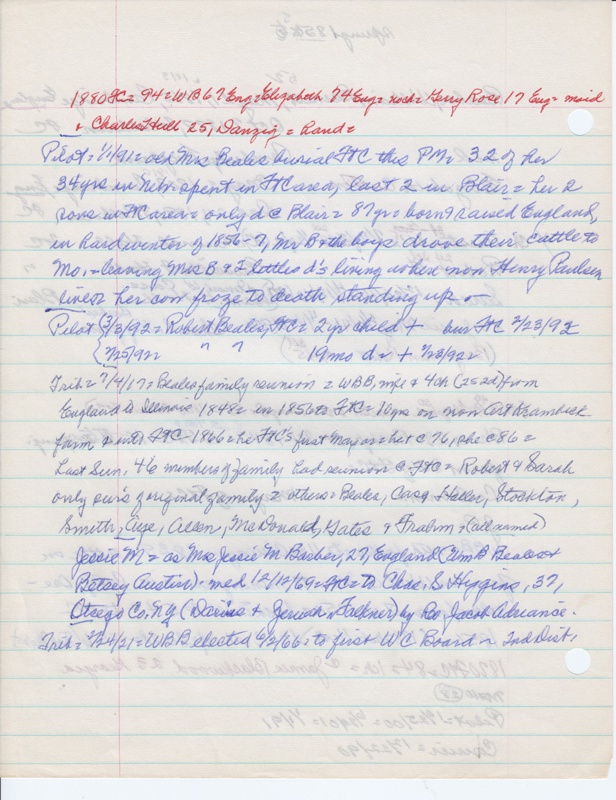 1880 FC = 94 = WB 67 Eng = Elizabeth 74 Eng = noch = Gerry Rose 17 Eng = maid
+ Charles Hull 25, Danzig = hand =
Pilot = 1/1/91 = old Mrs Beales burial FtC this PM = 32 of her
34 yrs in Nebr spent in FtC area, last 2 in Blair = her 2
sons in FtC area = only d @ Blair = 87 yr = born & raised England,
in hard winter of 1856-7, Mr B & the boys drove their cattle to
Mo, - leaving Mrs B & 2 little d's living where now Henry Paulsen
lives = her cow froze to death, standing up.
Pilot 3/3/92 = Robert Beales, FtC = 2 yr child + bur FtC 2/23/92
2/25/92 " " 19 mo d + 2/23/92
Trib = 7/4/17 = Beales family reunion = WBB, wife & 4 ch (2s 2d) from
England to Illinois 1848 = in 1856 to FtC = 10 yrs on now Art Krambeck
farm & into FtC - 1866 = he FtC's first Mayor = he + @ 76, she @ 86 =
Last Sun. 46 members of family had reunion @ FtC = Robert & Sarah
only surv's of original family = others = Beales, Cass, Haller, Stockton,
Smith, Aye, Allen, McDonald, Gates & Frahm = (all named)
Jessie M = as Mrs Jessie M Barber, 27, England (Wm B Beales &
Betsey Austin) - med 12/12/69 = FtC = to Chas. S Higgins, 37,
Otsego Co. NY (Darius & Jerusha Falkner) by Rev Jacob Adriance.
Trib = 2/24/21 = WBB elected 6/2/66 = to first WC Board ~ 2nd Dist,